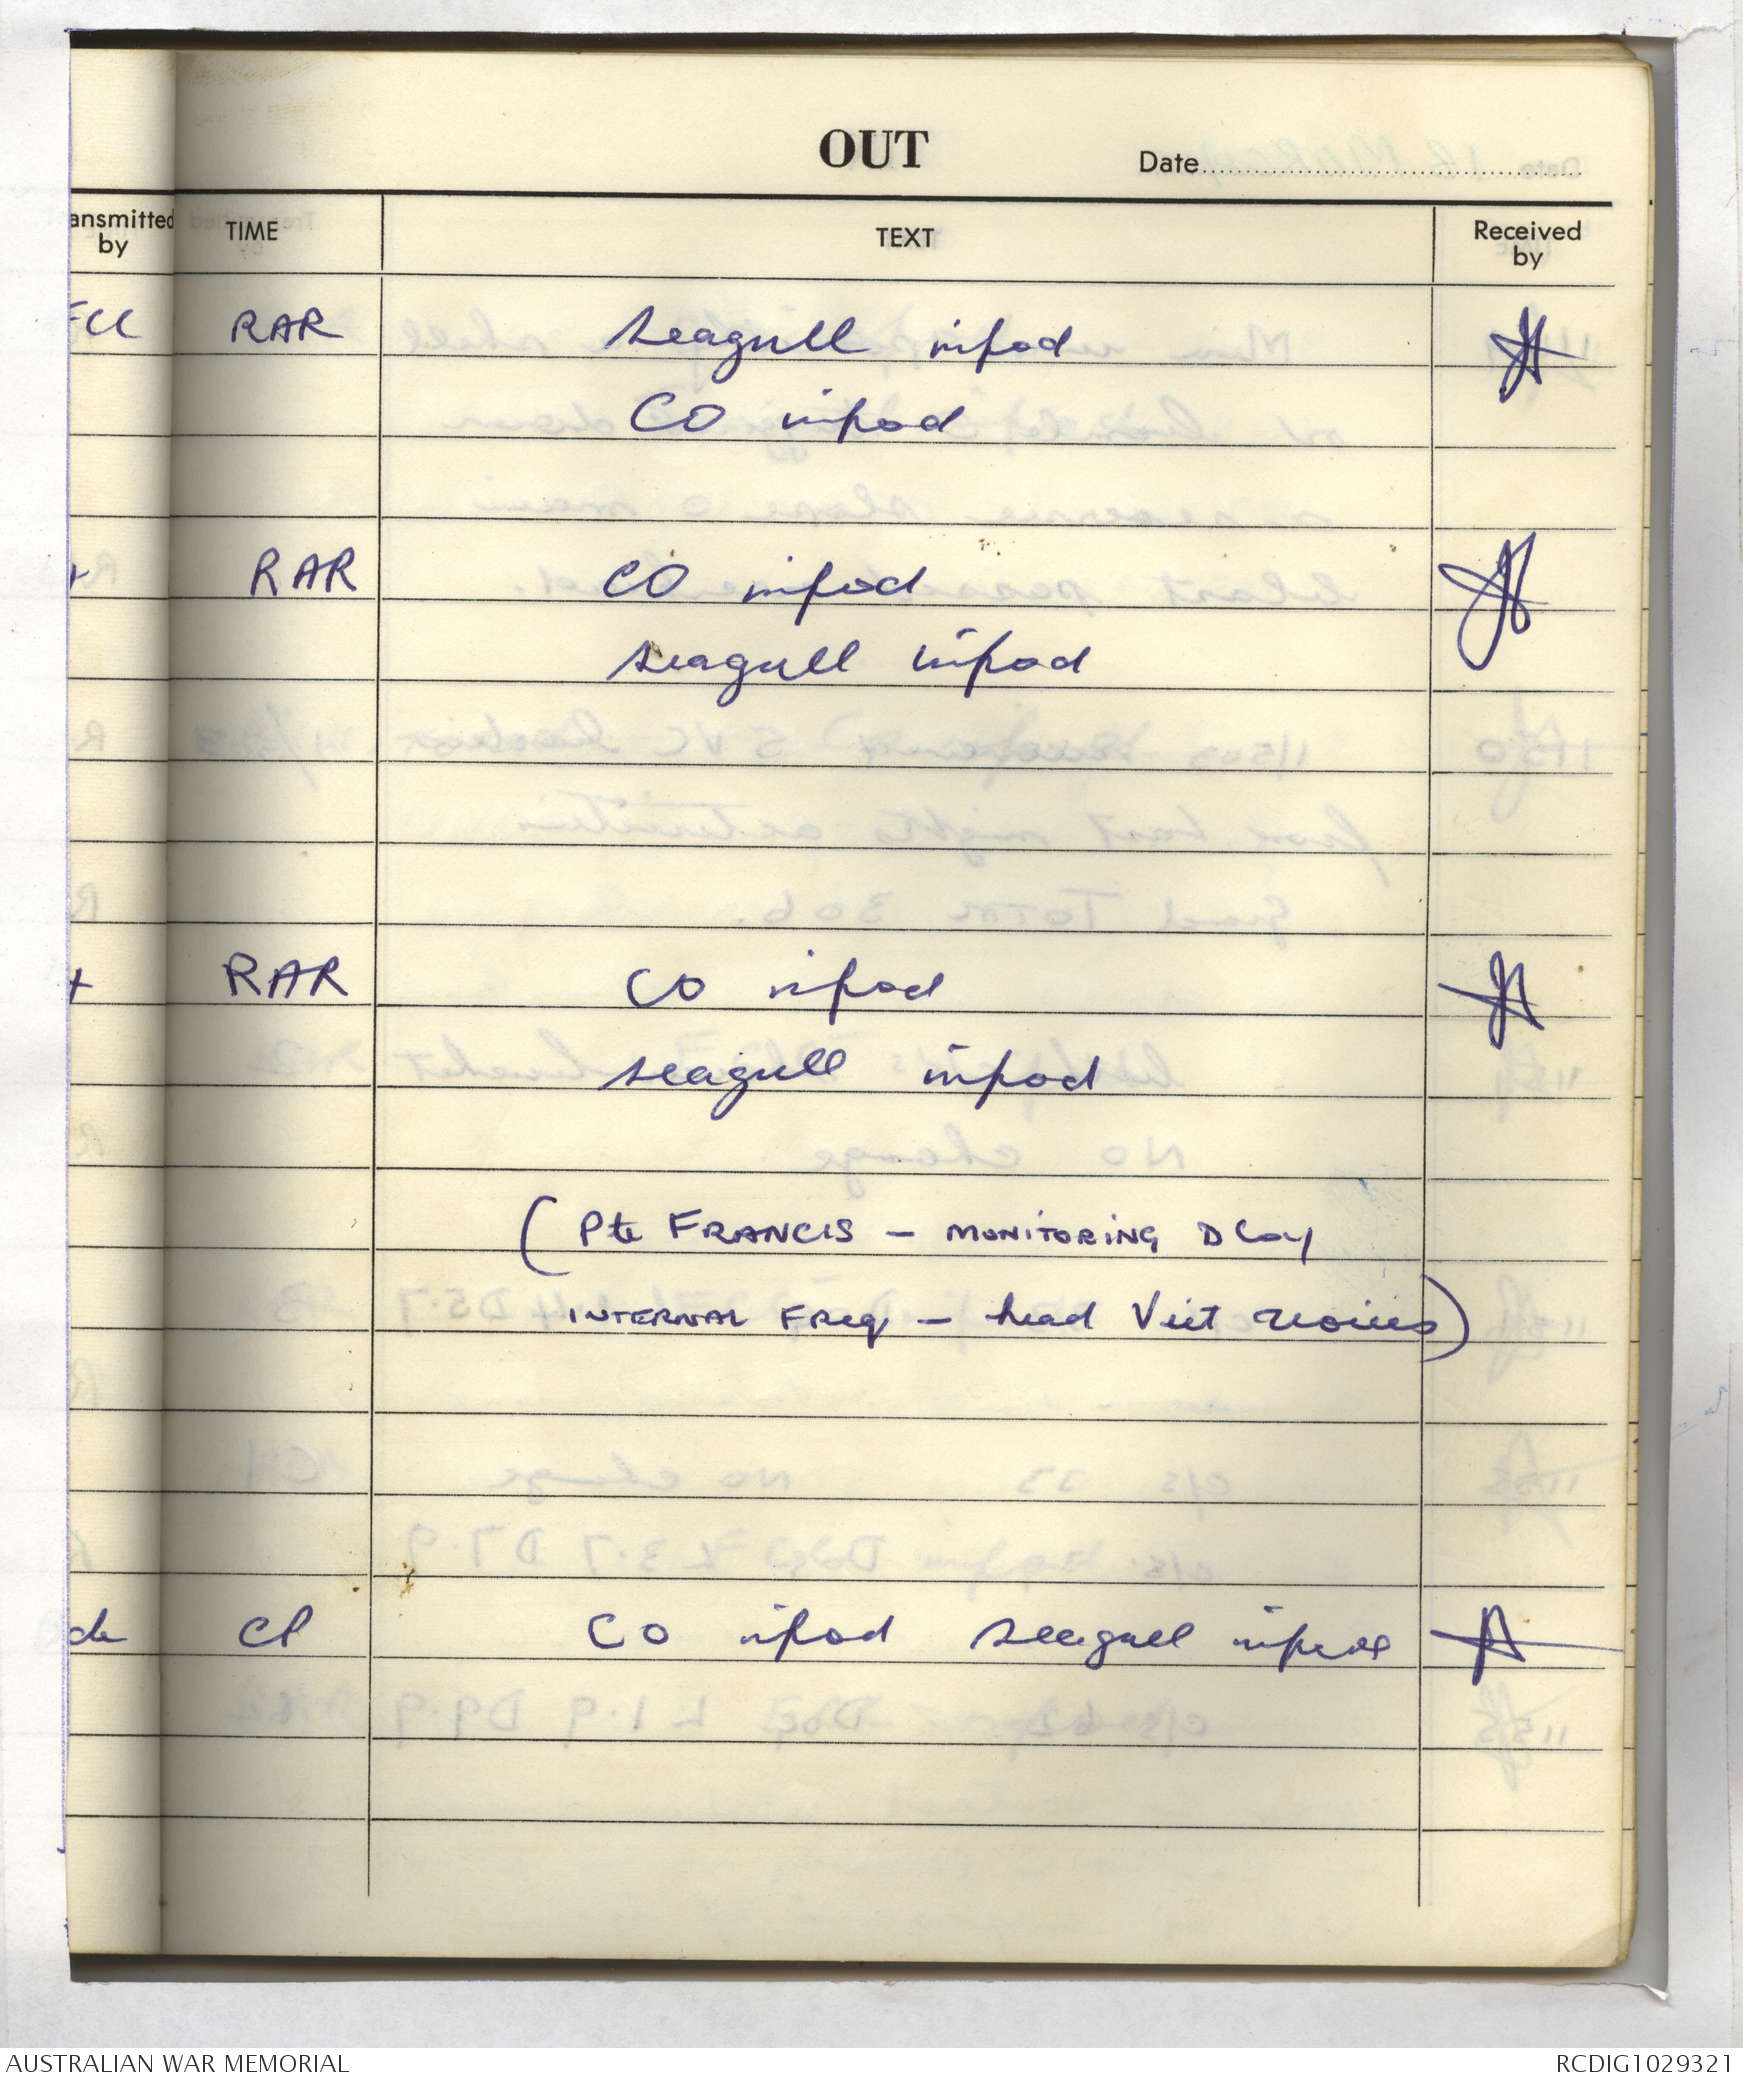 OUT
Date
ansmitted by TIME TEXT Received by
RAR seagull infod
CO infod
RAR CO infod
seagull infod
RAR CO infod
seagull infod
(Pte FRANCIS - MONITORING D Coy
INTERNAL FREQ - head Viet voices)
CP CO infod seagull infod
AUSTRALIAN WAR MEMORIAL RCDIG1029321